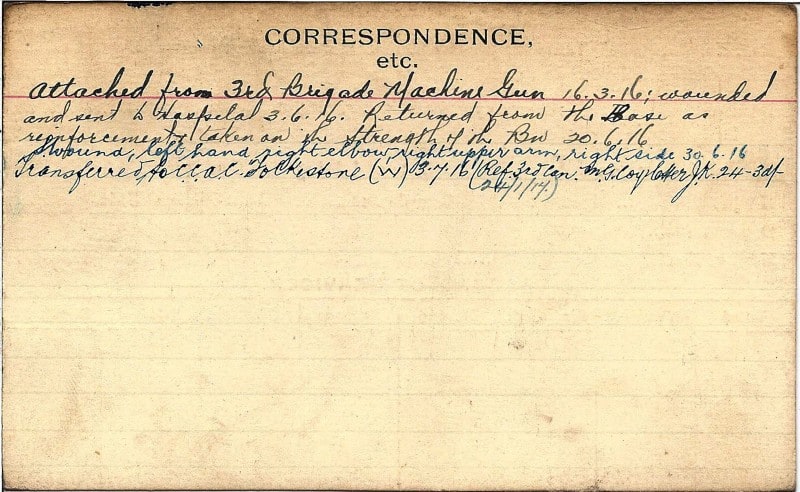 CORRESPONDENCE,
etc.
attached from 3rd Brigade Machine Gun 16.3.16; wounded
and sent to Hospital 3.6.16. Returned from the Base as
reinforcements taken on in strength of the Bn 20.6.16
S wound, left hand, right elbow, right upper arm, right side 30.6.16
Transferred to C.C.A.C. Folkestone (W) 13.7.16 (Ref. 3rd Can. M.G. Coy letter J.K. 24-3d/-
24/1/17.)